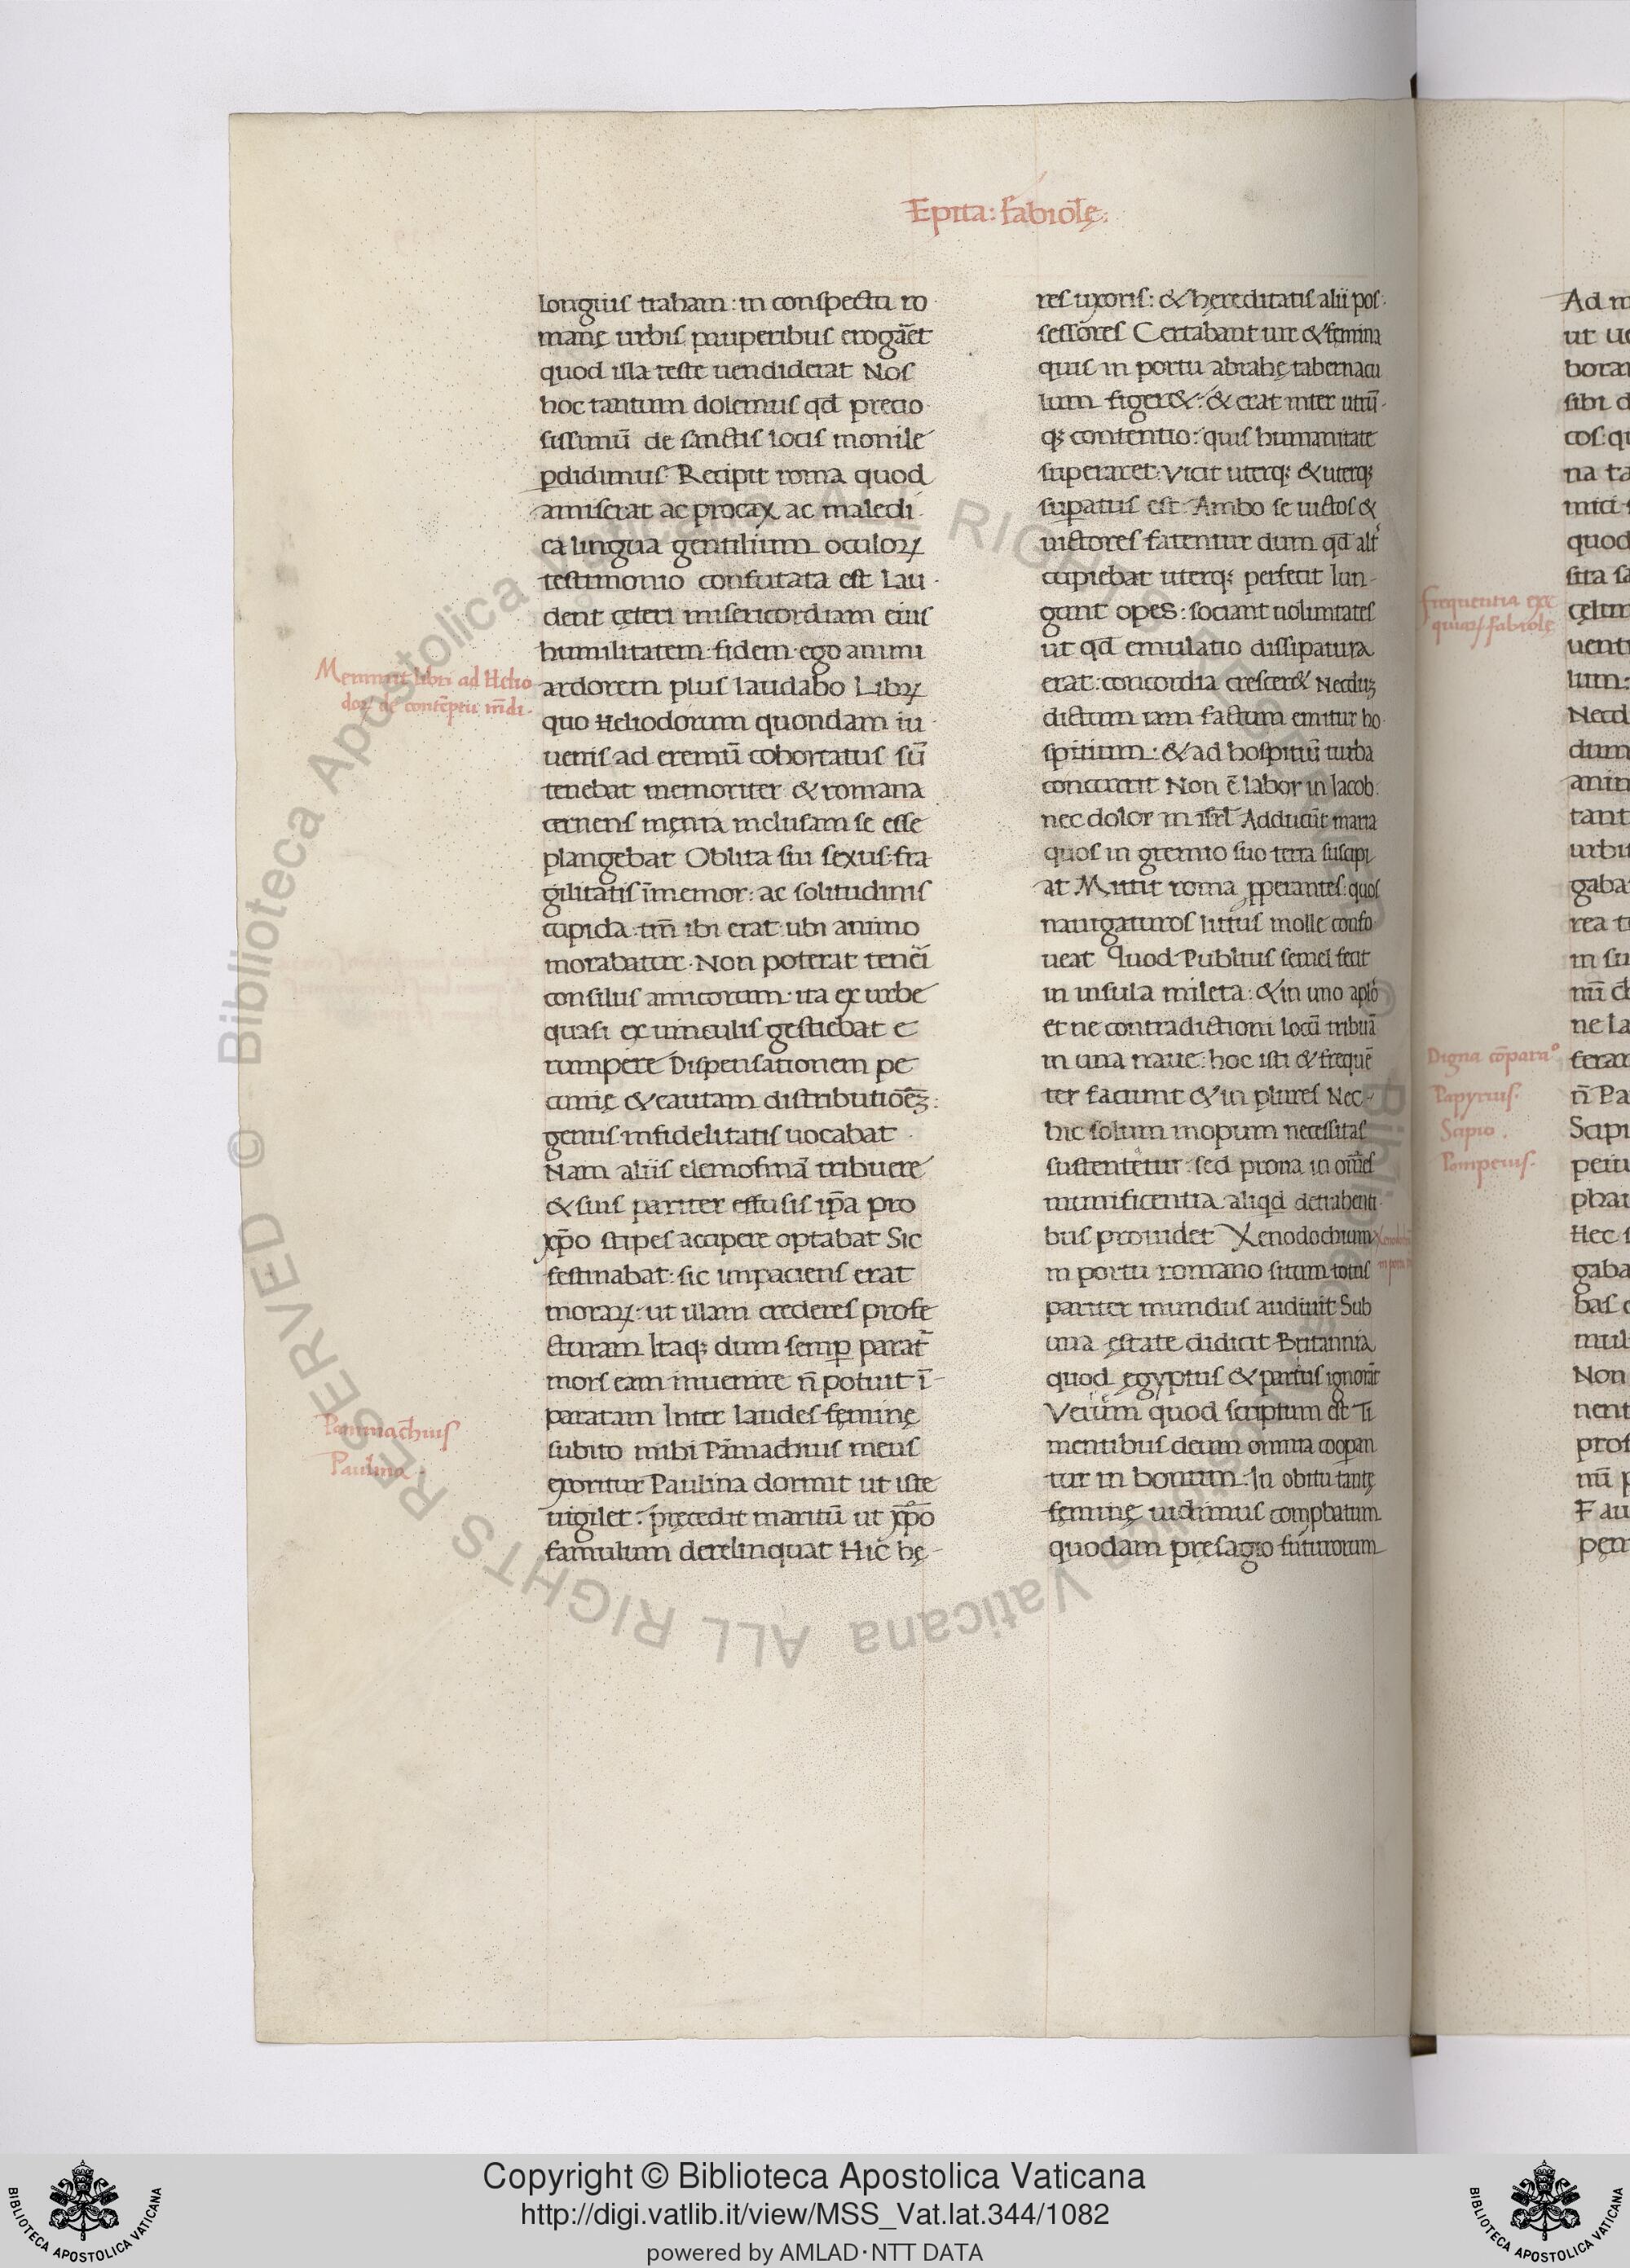 Epita: fabiolę:
longius traham: in conspectu ro
manę urbis pauperibus erogāet
quod illa teste uendiderat Nos
hoc tantum dolemus qđ precio
sissimū de sanctis locis monile
pdidimus Recipit roma quod
amiserat ac procax ac maledi
ca lingua gentilium oculoꝝ
testimonio confutata est Lau
dent ceteri misericordiam eius
humilitatem fidem ego animi
Meminit libri ad Helio
doꝝ de contēptu mūdi
ardorem plus laudabo Libꝝ
quo Heliodorum quondam iu
uenis ad eremū cohortatus sū
tenebat memoriter & romana
cernens męnia inclusam se esse
plangebat Oblita sui sexus fra
gilitatis īmemor: ac solitudinis
cupida tm̄ ibi erat ubi animo
morabatur Non poterat teneri
consiliis amicorum ita ex urbe
quasi ex uinculis gestiebat e
rumpere Dispensationem pe
cunię & cautam distributiōeꝫ:
genus infidelitatis uocabat
Nam aliis elemosinā tribuere
& suis pariter effusis ip̄a pro
xp̄o stipes accipere optabat Sic
festinabat: sic impaciens erat
moraꝝ: ut illam crederes profe
cturam Itaqꝫ dum semꝑ parat̄
mors eam inuenire n̄ potuit ī
paratam Inter laudes feminę
Pammachius
subito mihi Pāmachius meus
Paulina
exoritur Paulina dormit ut iste
uigilet: pręcedit maritū ut xp̄o
famulum derelinquat Hic hę
res uxoris: & hereditatis alii pos
sessores Certabant uir & femina
quis in portu abrahę tabernacu
lum figer&: & erat inter utrū
qꝫ contentio: quis humanitate
superaret: Vicit uterqꝫ & uterqꝫ
suꝑatus est Ambo se uictos &
uictores fatentur dum qđ alt̄
cupiebat uterqꝫ perfecit Iun
gunt opes: sociant uoluntates
ut qđ emulatio dissipatura
erat: concordia crescer& Necduꝫ
dictum iam factum emitur ho
spitium: & ad hospitiū turba
concurrit Non ē labor in Iacob
nec dolor in isrl̄ Adducūt maria
quos in gremio suo terra suscipi
at Mittit roma ꝓperantes: quos
nauigaturos littus molle confo
ueat Quod Publius semel fecit
in insula mileta: & in uno aplō
et ne contradictioni locū tribuā
in una naue: hoc isti & frequē
ter faciunt & in plures Nec
hic solum inopum necessitas
sustentetur: sed prona in om̄es
munificentia aliqd detrahenti
bus prouidet Xenodochium
in portu romano situm totus
pariter mundus audiuit Sub
una ęstate didicit Britannia
quod egyptus & partus ignorāt
Veium quod scriptum est Ti
mentibus deum omnia cooperan
tur in bonum: In obitu tantę
feminę uidimus comp̱batum
quodam pręsagio futurorum
frequentia exe
quiaꝝ fabiolę
Digna cōparatio
Papyrius.
Sapio.
Pompeius.
Copyright © Biblioteca Apostolica Vaticana
http://digi.vatlib.it/view/MSS_Vat.lat.344/1082
powered by AMLAD·NTT DATA
BIBLIOTECA APOSTOLICA VATICANA
BIBLIOTECA APOSTOLICA VATICANA
© Biblioteca Apostolica Vaticana ALL RIGHTS RESERVED
© Biblioteca Apostolica Vaticana ALL RIGHTS RESERVED